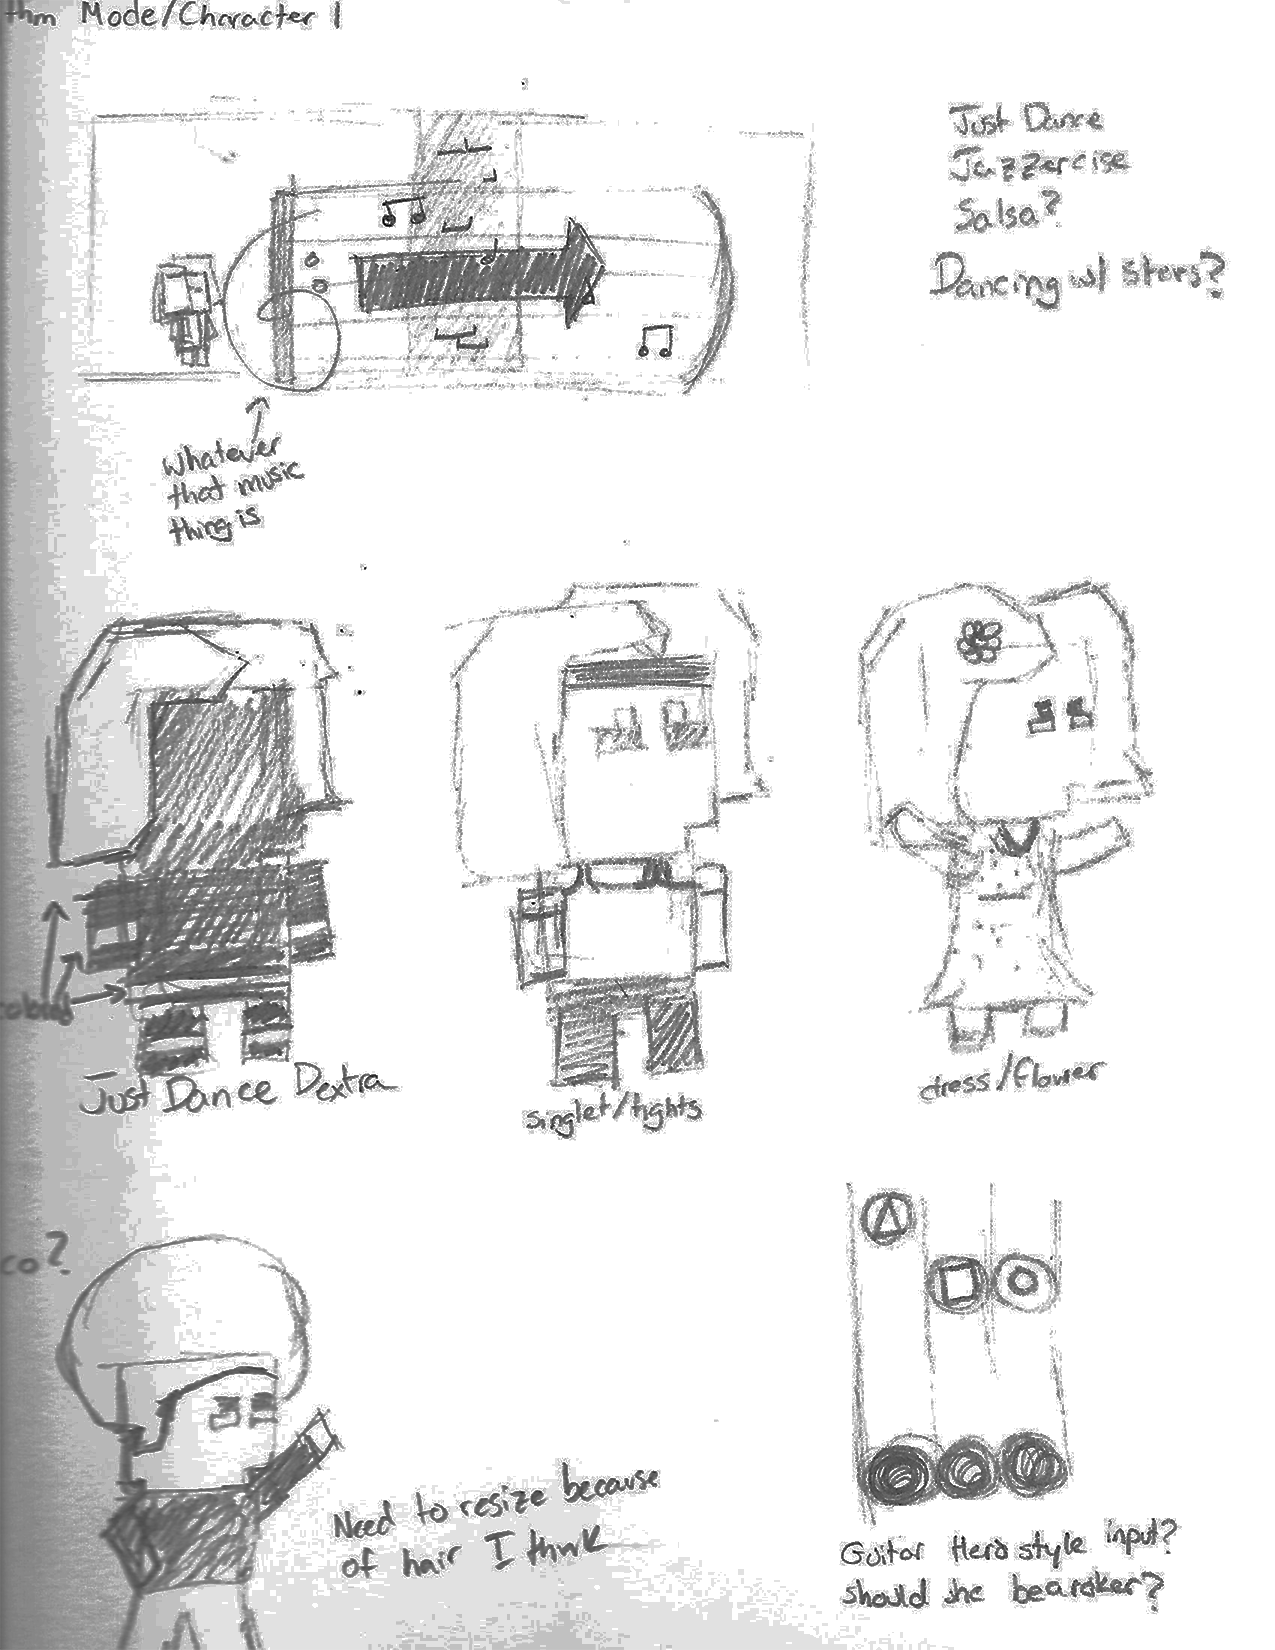 thm Mode/Character 1
Just Dance
Jazzercise
Salsa?
Dancing w/ Stars?
whatever
that music
thing is
Just Dance Dextra
singlet/tights
dress/flower
co?
Need to resize because
of hair I think
Guitar Hero style input?
should she be a rocker?